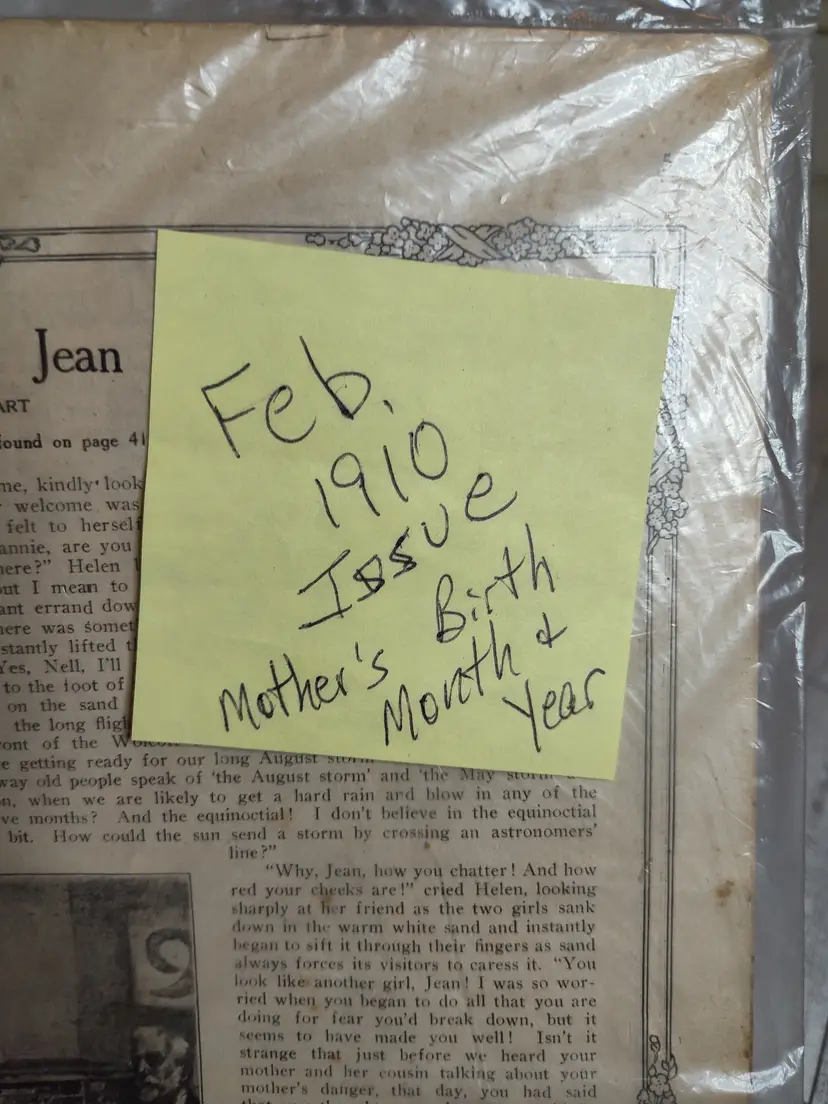 Jean
ART
found on page 41
me, kindly look
welcome was
felt to herself
annie, are you
here?" Helen
but I mean to
ant errand dow
here was somet
stantly lifted t
Yes, Nell, I'll
to the foot of
on the sand
the long flig
ont of the
e getting ready for our long August storm
way old people speak of 'the August storm' and 'the May storm
n, when we are likely to get a hard rain and blow in any of the
ve months? And the equinoctial! I don't believe in the equinoctial
bit. How could the sun send a storm by crossing an astronomers'
line?"
"Why, Jean, how you chatter! And how
red your cheeks are!" cried Helen, looking
sharply at her friend as the two girls sank
down in the warm white sand and instantly
began to sift it through their fingers as sand
always forces its visitors to caress it. "You
look like another girl, Jean! I was so wor-
ried when you began to do all that you are
doing for fear you'd break down, but it
seems to have made you well! Isn't it
strange that just before we heard your
mother and her cousin talking about your
mother's danger, that day, you had said
Feb.
1910
Issue
Mother's Birth
Month &
Year